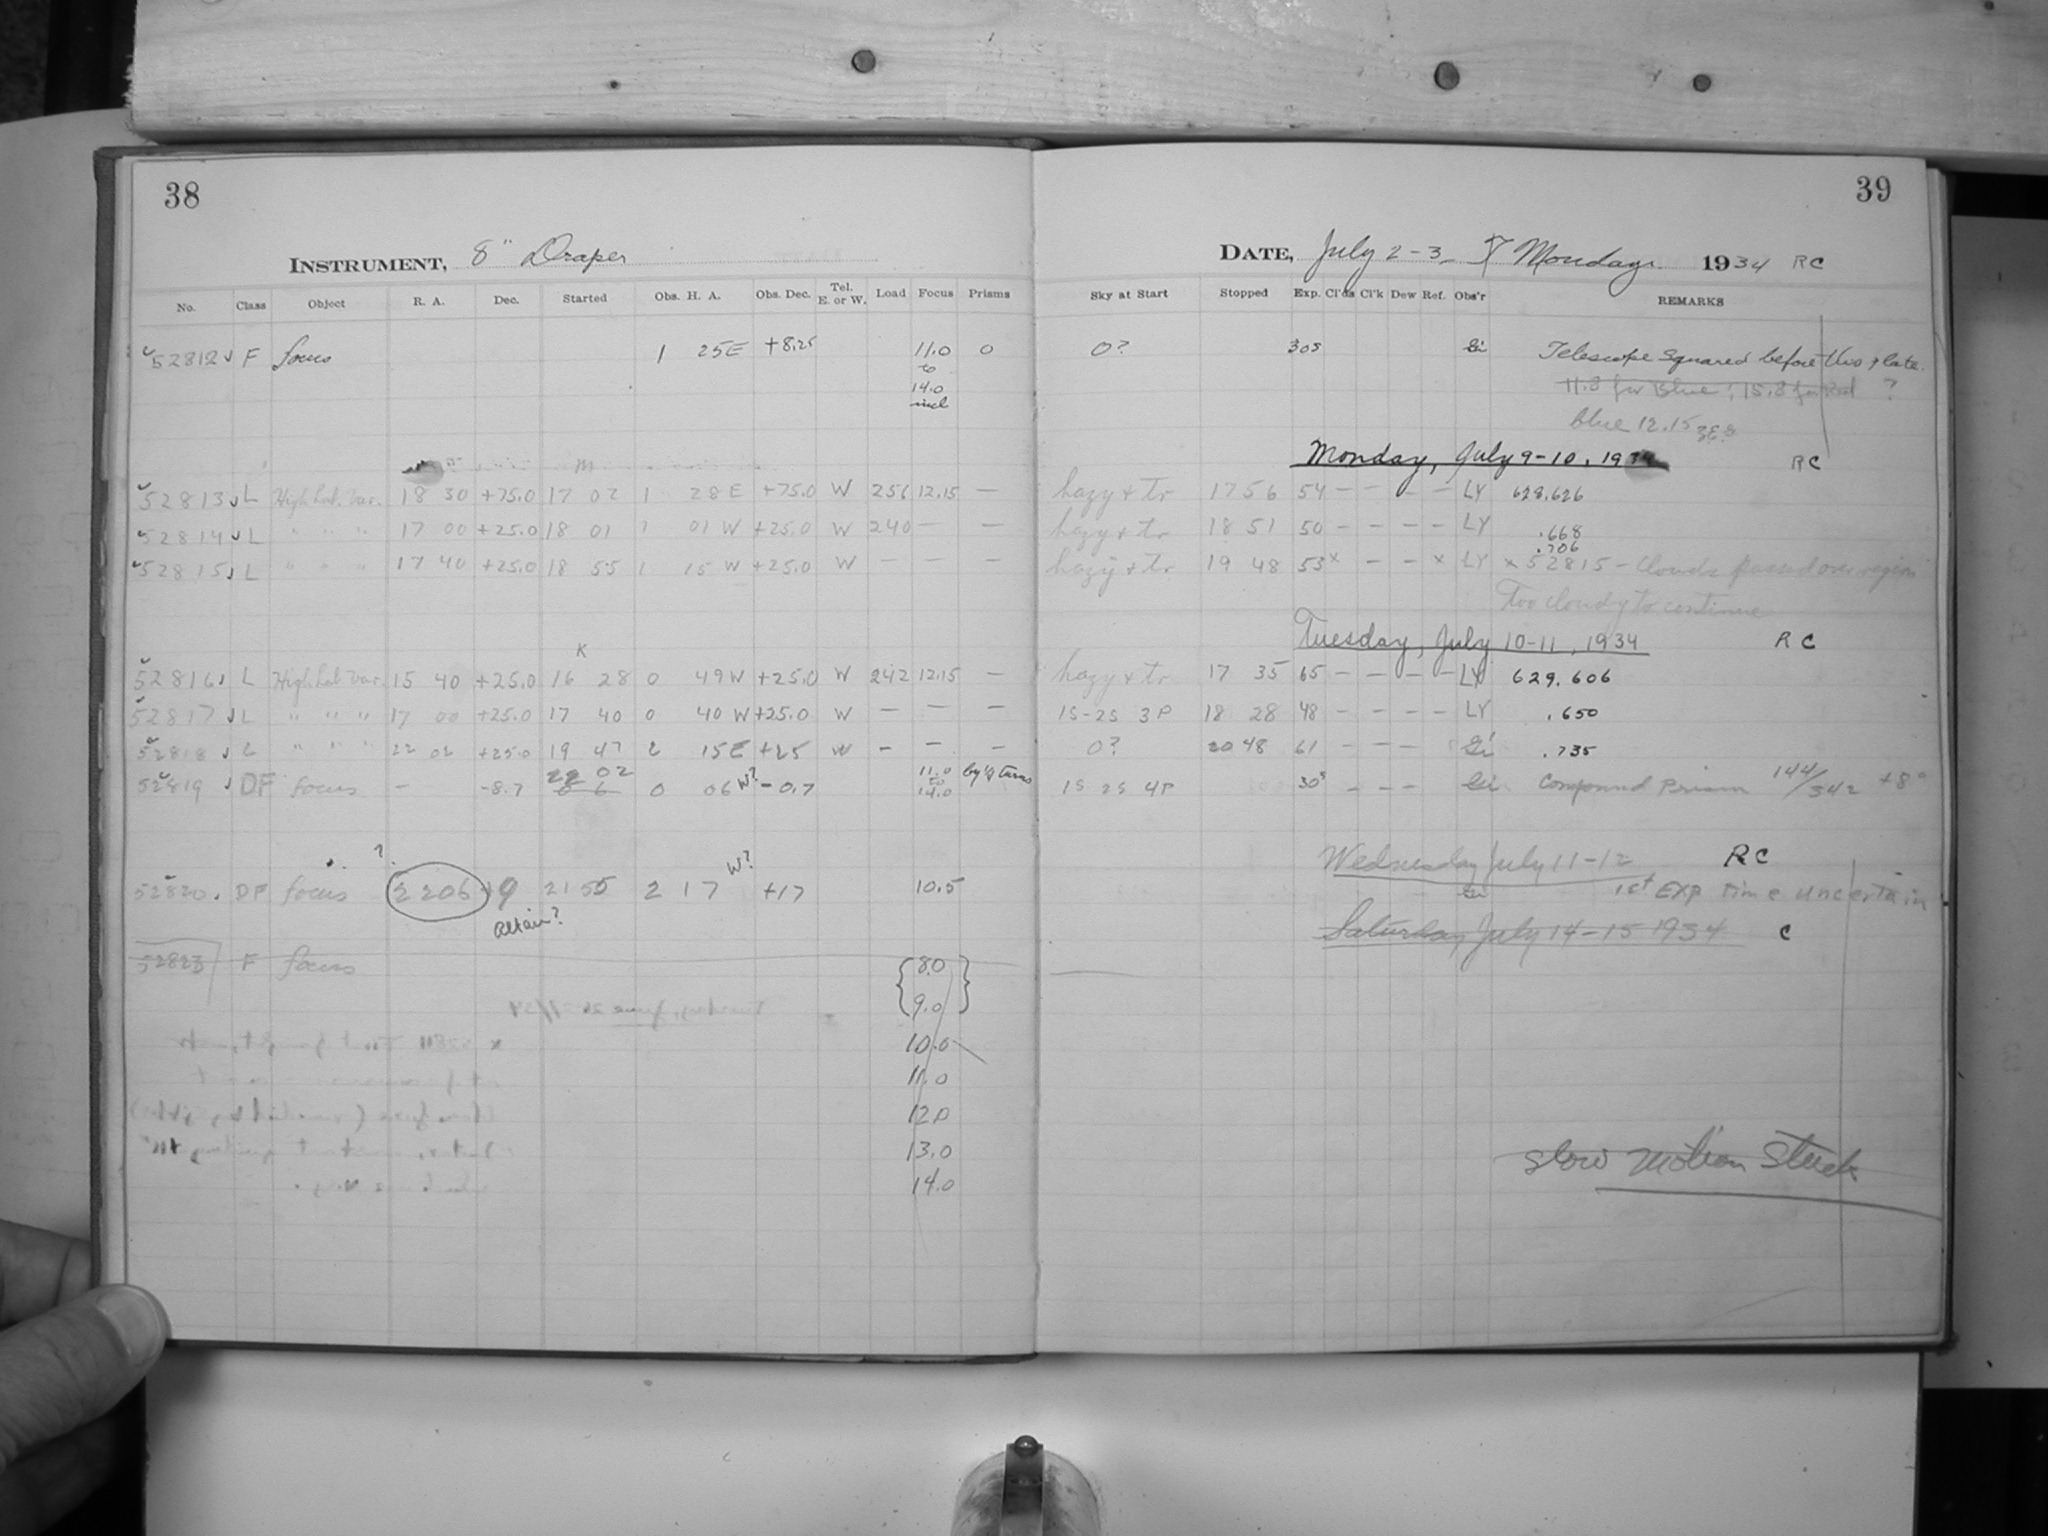 38
INSTRUMENT, 8" Draper
No. Class Object R. A. Dec. Started Obs. H. A. Obs. Dec. Tel. E. or W. Load Focus Prisms
52812 F focus 1 25E +8.25 11.0 0
to
14.0
incl
M
52813 L High Lat. Var. 18 30 +75.0 17 02 1 28 E +75.0 W 256 12.15 —
52814 L " " " 17 00 +25.0 18 01 1 01 W +25.0 W 240 — —
52815 L " " " 17 40 +25.0 18 55 1 15 W +25.0 W — — —
K
52816 L High Lat Var. 15 40 +25.0 16 28 0 49 W +25.0 W 242 12.15 —
52817 L " " " 17 00 +25.0 17 40 0 40 W +25.0 W — — —
52818 L " " " 22 02 +25.0 19 47 2 15E +25 W — — —
22 02
52819 DF focus — -8.7 0 06 W? -0.7 11.0 to 14.0 by ½ turns
? W?
52820 DF focus 2206 +9 2155 2 17 +17 10.5
Altair?
52823 F focus {8.0
9.0}
10.0
11.0
12.0
13.0
14.0
39
DATE, July 2-3 Monday 1934 RC
Sky at Start Stopped Exp. Cl'ds Cl'k Dew Ref. Obs'r REMARKS
0? 30s Gi Telescope squared before this plate.
11.8 for Blue; 15.8 for Red ?
blue 12.15
Monday, July 9-10, 1934 RC
hazy + tr 17 56 54 — — — — LY 628.626
hazy + tr 18 51 50 — — — — LY .668
.706
hazy + tr 19 48 53x — — x LY x 52815 - Clouds passed over region
Too cloudy to continue
Tuesday, July 10-11, 1934 RC
hazy + tr 17 35 65 — — — — LY 629.606
1S-2S 3P 18 28 48 — — — — LY .650
0? 20 48 61 — — — Gi .735
1S 2S 4P 30s — — — Gi Compound Prism 144/342 +8°
Wednesday July 11-12 RC
Gi 1st Exp time uncertain
Saturday July 14-15 1934 C
Slow motion stuck